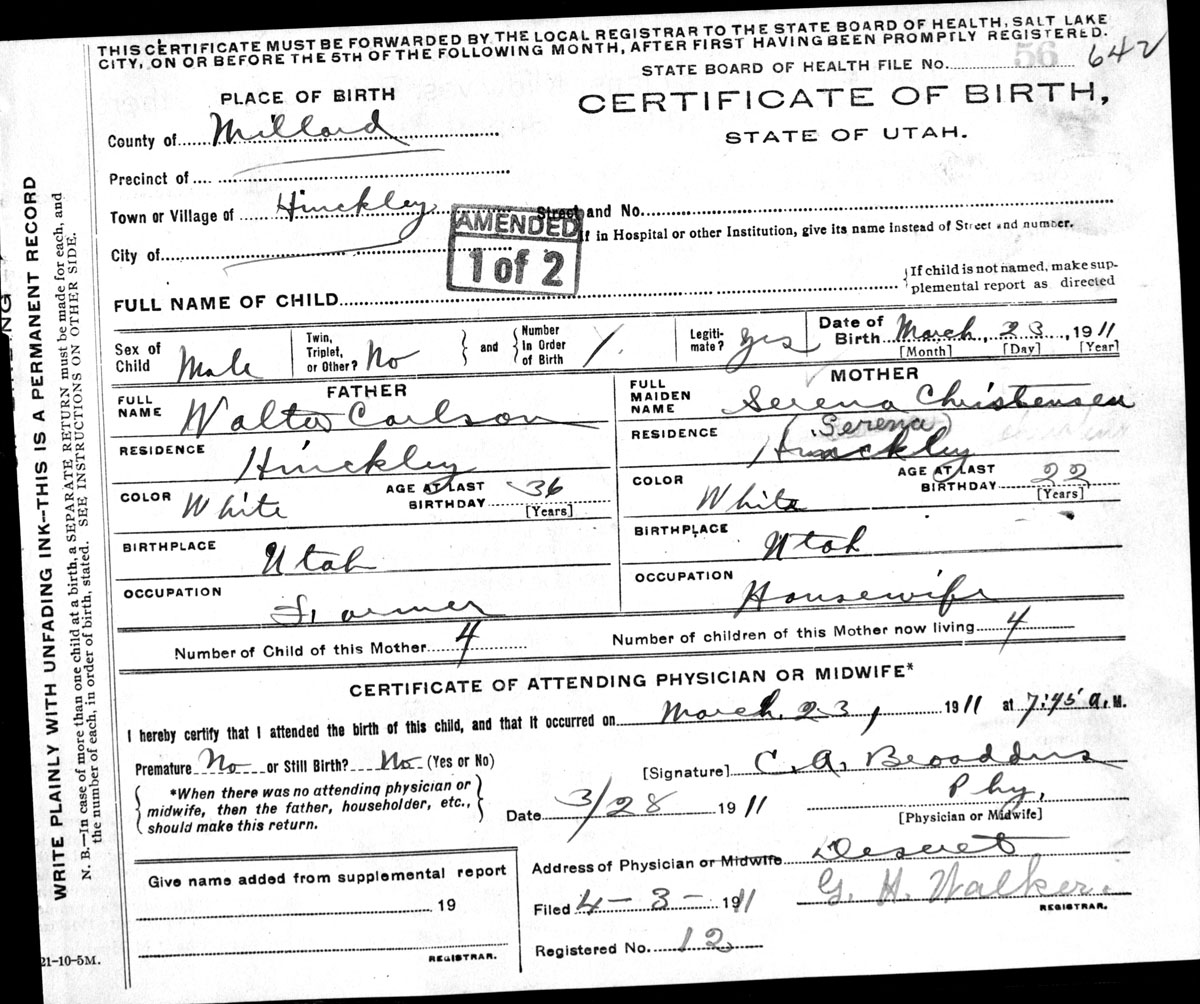 THIS CERTIFICATE MUST BE FORWARDED BY THE LOCAL REGISTRAR TO THE STATE BOARD OF HEALTH, SALT LAKE
CITY, ON OR BEFORE THE 5TH OF THE FOLLOWING MONTH, AFTER FIRST HAVING BEEN PROMPTLY REGISTERED.
STATE BOARD OF HEALTH FILE No. 56 642
PLACE OF BIRTH
CERTIFICATE OF BIRTH,
STATE OF UTAH.
County of Millard
Precinct of
Town or Village of Hinckley Street and No.
AMENDED
1 of 2
If in Hospital or other Institution, give its name instead of Street and number.
City of
FULL NAME OF CHILD
If child is not named, make sup-
plemental report as directed
Sex of Child Male
Twin, Triplet, or Other? No
and Number In Order of Birth 1.
Legiti-mate? Yes
Date of Birth March, 23, 1911
[Month] [Day] [Year]
FATHER
FULL NAME Walter Carlson
RESIDENCE Hinckley
COLOR White AGE AT LAST BIRTHDAY 36
[Years]
BIRTHPLACE Utah
OCCUPATION Farmer
MOTHER
FULL MAIDEN NAME Serena Christensen
(Serena)
RESIDENCE Hinckley
COLOR White AGE AT LAST BIRTHDAY 22
[Years]
BIRTHPLACE Utah
OCCUPATION Housewife
Number of Child of this Mother 4 Number of children of this Mother now living 4
CERTIFICATE OF ATTENDING PHYSICIAN OR MIDWIFE*
I hereby certify that I attended the birth of this child, and that it occurred on March, 23, 1911 at 7:45 a.M.
Premature No or Still Birth? No (Yes or No)
[Signature] C. A. Broaddus
*When there was no attending physician or
midwife, then the father, householder, etc.,
should make this return.
Date 3/28 1911
Phy.
[Physician or Midwife]
Address of Physician or Midwife Deseret
Filed 4-3-1911 G. H. Walker.
REGISTRAR.
Registered No. 12
Give name added from supplemental report
19
REGISTRAR.
21-10-5M.
WRITE PLAINLY WITH UNFADING INK--THIS IS A PERMANENT RECORD
N. B.—In case of more than one child at a birth, a SEPARATE RETURN must be made for each, and
the number of each, in order of birth, stated. SEE INSTRUCTIONS ON OTHER SIDE.